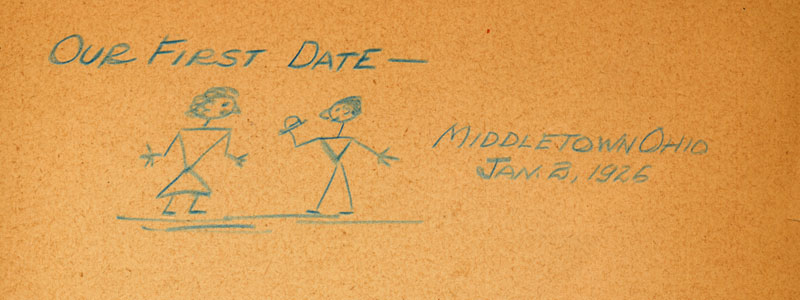 OUR FIRST DATE —
MIDDLETOWN OHIO
JAN. 2, 1926